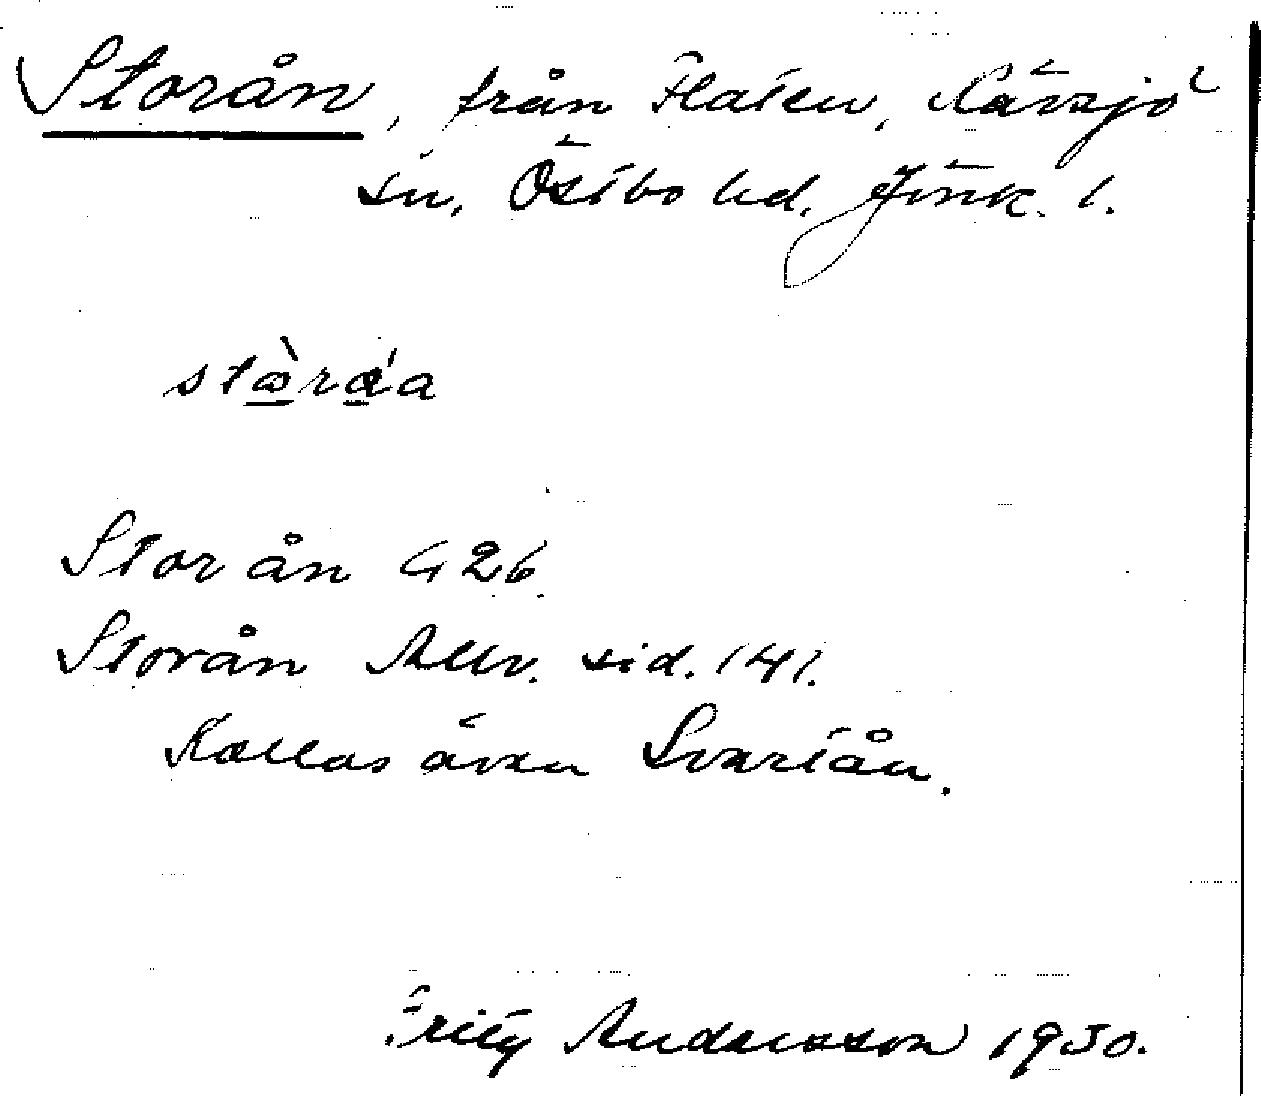 Storån, från Flaten, Nävsjö
sn, Östbo hd. Jönk. l.
stòråa
Storån G 26.
Storån Allv. sid. 141.
Kallas även Svartån.
Fritz Andersson 1930.